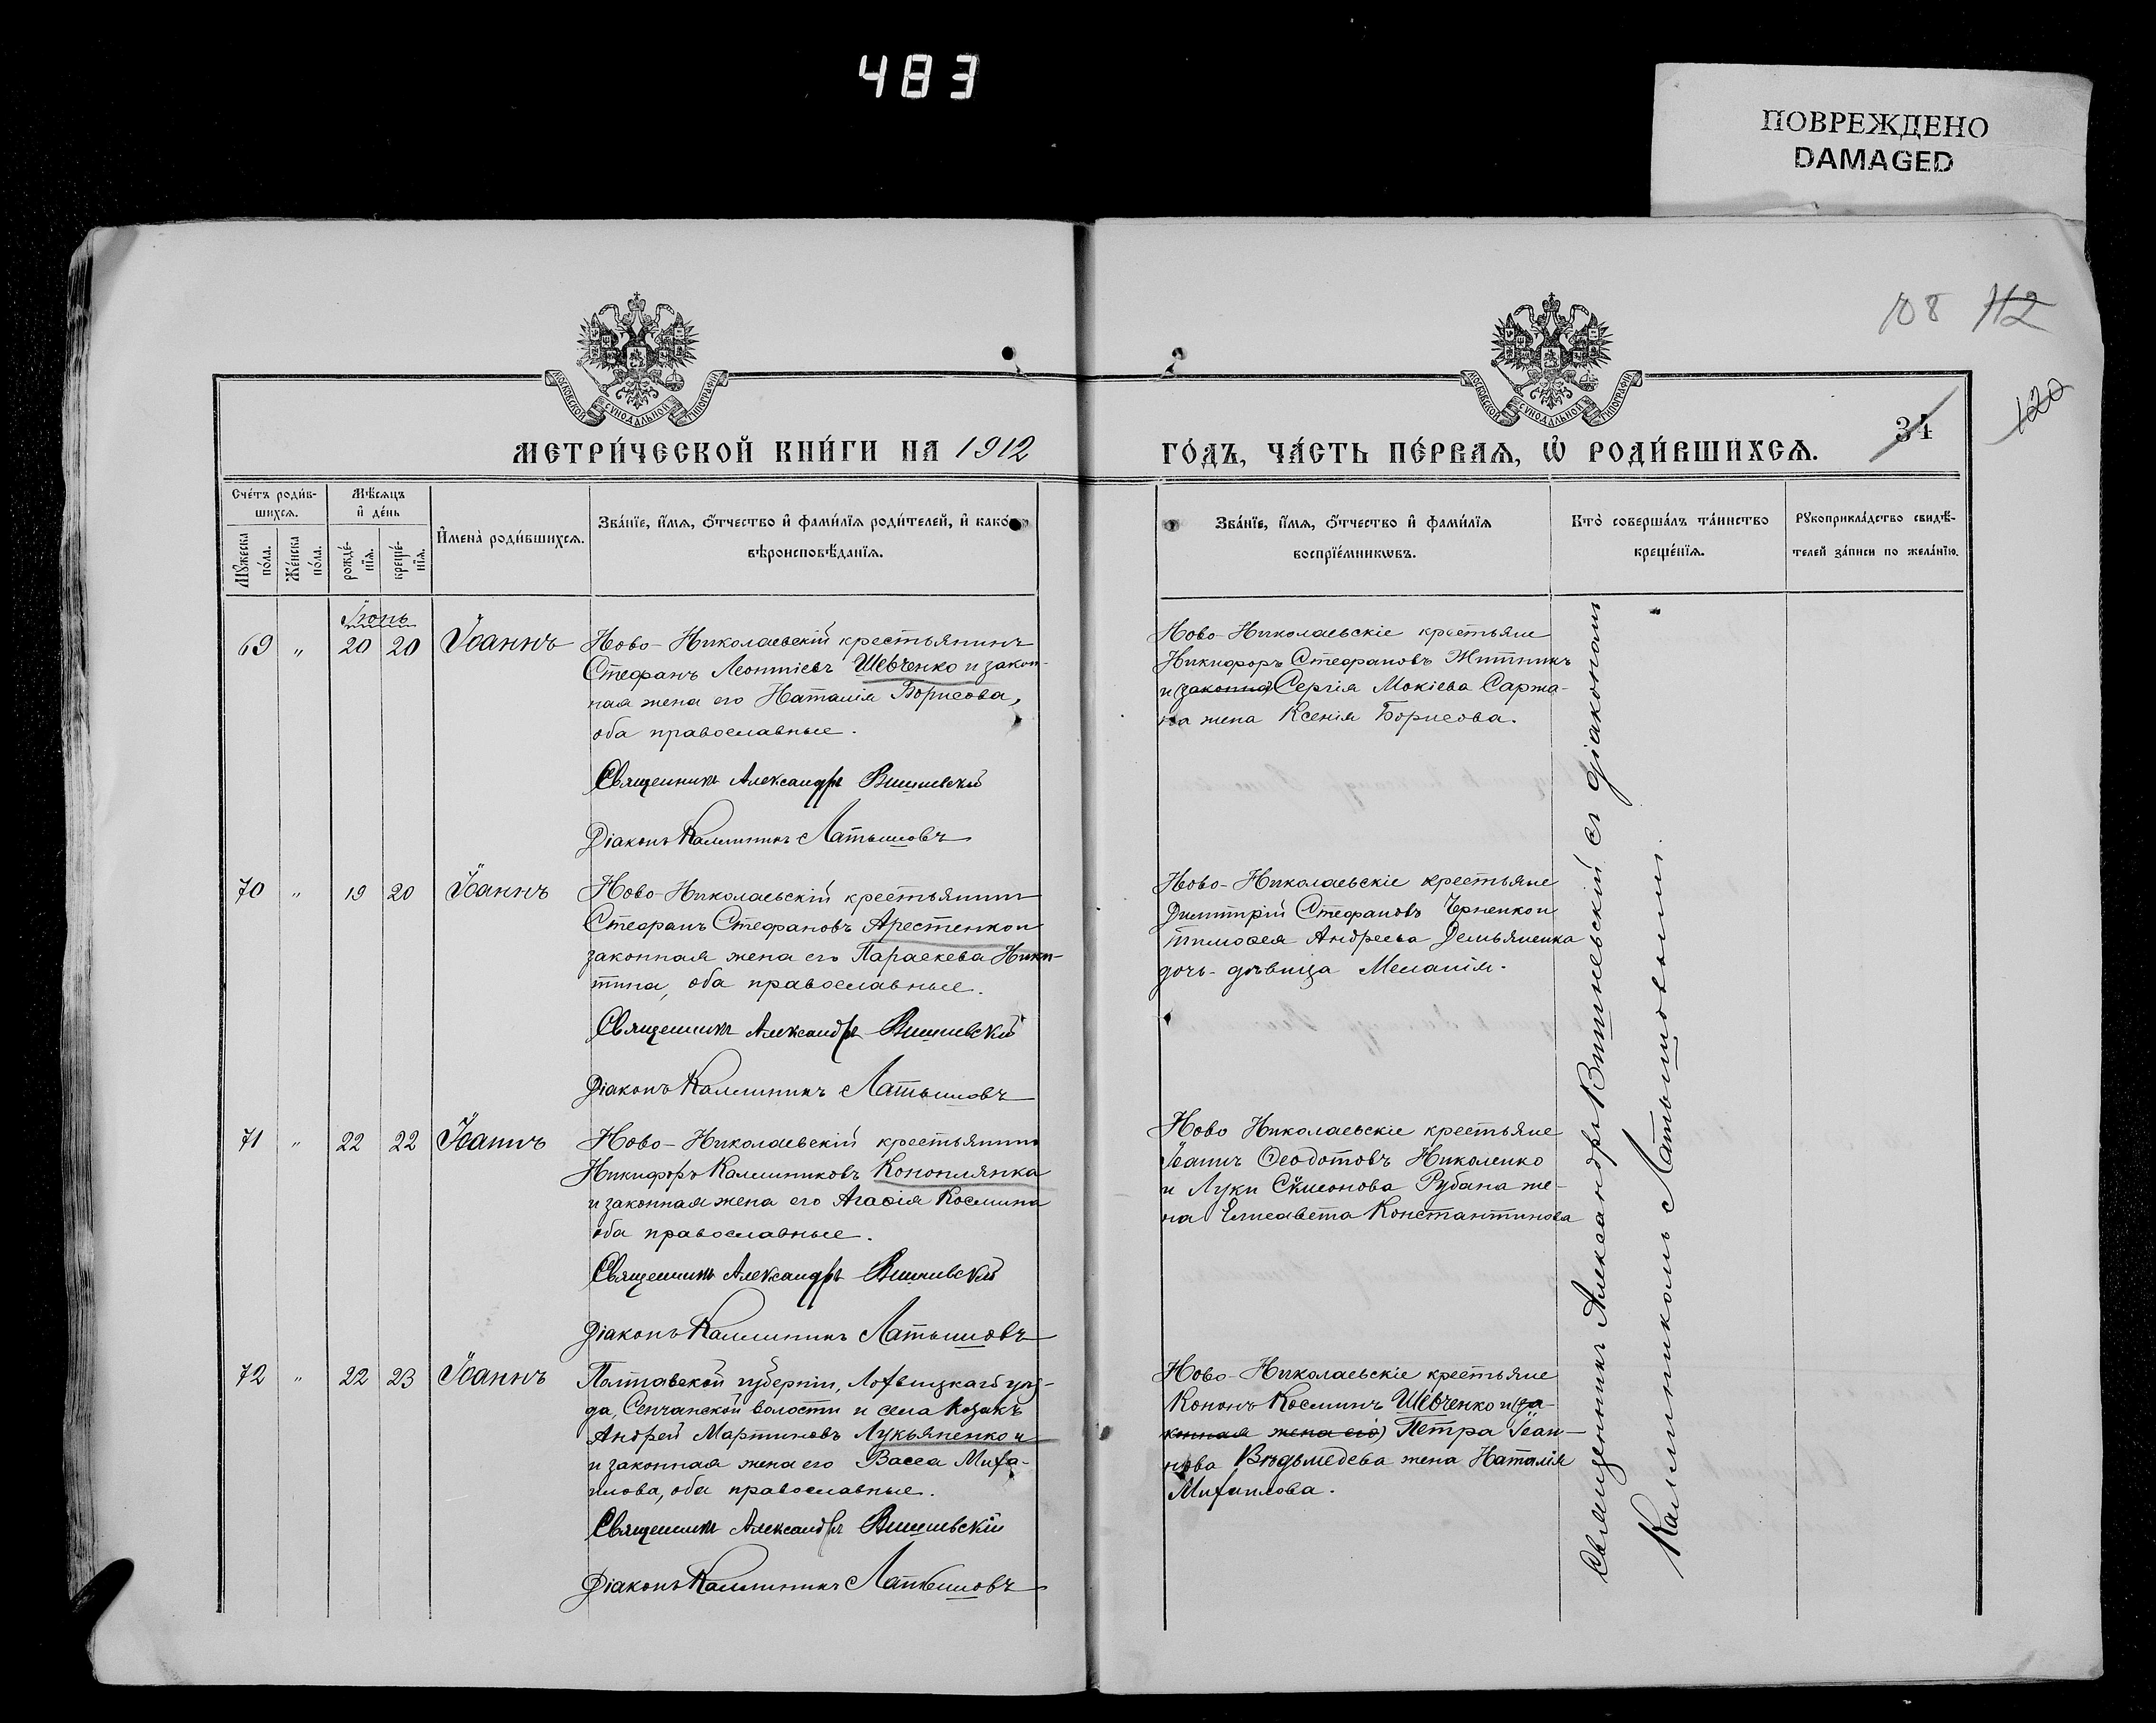 483
ПОВРЕЖДЕНО
DAMAGED
108 112
120
34
МОСКОВСКОЙ СѴНОДАЛЬНОЙ ТИПОГРАФІИ
МОСКОВСКОЙ СѴНОДАЛЬНОЙ ТИПОГРАФІИ
МЕТРИ́ЧЕСКОЙ КНИ́ГИ НА 1912
ГО́ДЪ, ЧА́СТЬ ПЕ́РВАѦ, Ѡ҆ РОДИ́ВШИХСѦ.
Сче́тъ роди́в-
шихсѧ.
Мꙋ́жеска по́ла.
Же́нска по́ла.
Мѣ́сѧцъ и҆ де́нь
рожде́-нїѧ.
креще́-нїѧ.
И҆мена̀ роди́вшихсѧ.
Зва́нїе, и҆́мѧ, ѻ҆́тчество и҆ фами́лїѧ роди́телей, и҆ како́го
вѣроисповѣ́данїѧ.
Зва́нїе, и҆́мѧ, ѻ҆́тчество и҆ фами́лїѧ
воспрїе́мникѡвъ.
Кто̀ соверша́лъ та́инство
креще́нїѧ.
Рꙋкоприкла́дство свидѣ́-
телей за́писи по жела́нїю.
Іюнь
69 " 20 20 Іоаннъ
Ново-Николаевскій крестьянинъ
Стефанъ Леонтіевъ Шевченко и закон-
ная жена его Наталія Борисова,
оба православные.
Священникъ Александръ Вишневскій
Діаконъ Каллиникъ Латышовъ
Ново-Николаевскіе крестьяне
Никифоръ Стефановъ Житникъ
и (законна) Сергія Мокіева Саржа-
на жена Ксенія Борисова.
70 " 19 20 Іоаннъ
Ново-Николаевскій крестьянинъ
Стефанъ Стефановъ Арестенко и
законная жена его Параскева Ники-
тина, оба православные.
Священникъ Александръ Вишневскій
Діаконъ Каллиникъ Латышовъ
Ново-Николаевскіе крестьяне
Димитрій Стефановъ Черненко и
Тимоѳея Андреева Демьяненка
дочь-дѣвица Меланія.
71 " 22 22 Іоаннъ
Ново-Николаевскій крестьянинъ
Никифоръ Каллиниковъ Коноплянка
и законная жена его Агаѳія Космина
оба православные.
Священникъ Александръ Вишневскій
Діаконъ Каллиникъ Латышовъ
Ново Николаевскіе крестьяне
Іоаннъ Ѳеодотовъ Николенко
и Луки Сѵмеонова Рубана же-
на Елисавета Константинова
72 " 22 23 Іоаннъ
Полтавской губерніи, Лохвицкаго уѣз-
да, Сенчанской волости и села козакъ
Андрей Мартиновъ Лукьяненко и
и законная жена его Васса Миха-
илова, оба православные.
Священникъ Александръ Вишневскій
Діаконъ Каллиникъ Латышовъ
Ново-Николаевскіе крестьяне
Кононъ Косминъ Шевченко и (за-
конная жена его) Петра Іоан-
нова Вѣдьмедева жена Наталія
Михаилова.
Священникъ Александръ Вишневскій съ діакономъ
Каллиникомъ Латышовымъ.